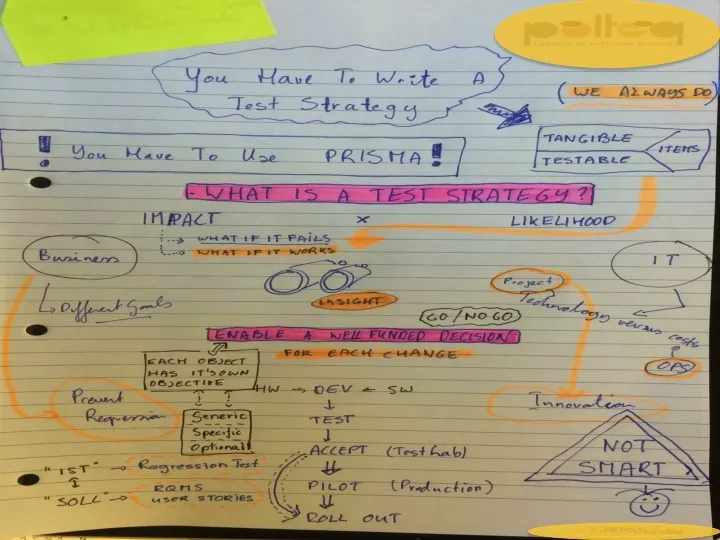 polteq
You Have To Write A
Test Strategy
(WE ALWAYS DO)
TANGIBLE
TESTABLE
ITEMS
! You Have To Use PRISMA!
- WHAT IS A TEST STRATEGY?
IMPACT x LIKELIHOOD
WHAT IF IT FAILS
WHAT IF IT WORKS
Business
IT
Different Goals
INSIGHT
Project
Technology versus costs
OPS
GO/NOGO
ENABLE A WELL FUNDED DECISION
FOR EACH CHANGE
EACH OBJECT
HAS IT'S OWN
OBJECTIVE
HW → DEV ← SW
Prevent
Regression
Generic
Specific
Optional
TEST
Innovation
ACCEPT (Testlab)
NOT
SMART
"IST" → Regression Test
PILOT (Production)
"SOLL" → RQMS
USER STORIES
ROLL OUT